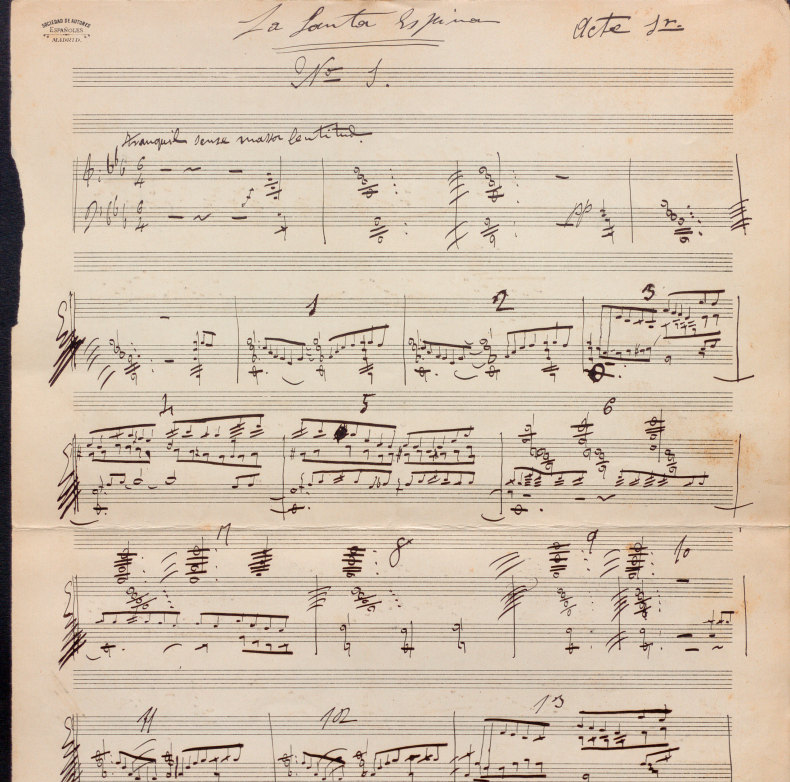 SOCIEDAD DE AUTORES
ESPAÑOLES
MADRID.
La Santa Espina
Acte 1r
No 1.
Tranquil sense massa lentitud.
6
4
6
4
f
pp
1 2 3
4 5 6
7 8 9 10
11 102 13